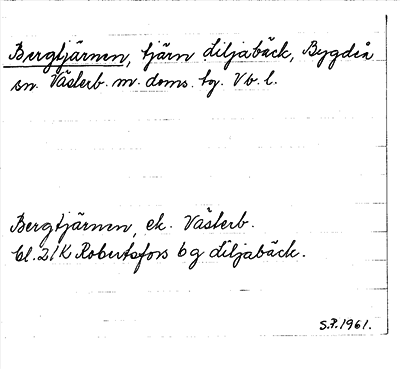 Bergtjärnen, tjärn Liljabäck, Bygdeå
sn. Västerb. m. doms. tg. Vb. l.
Bergtjärnen, ek. Västerb.
bl. 21K Robertsfors 6g Liljabäck.
S.P. 1961.